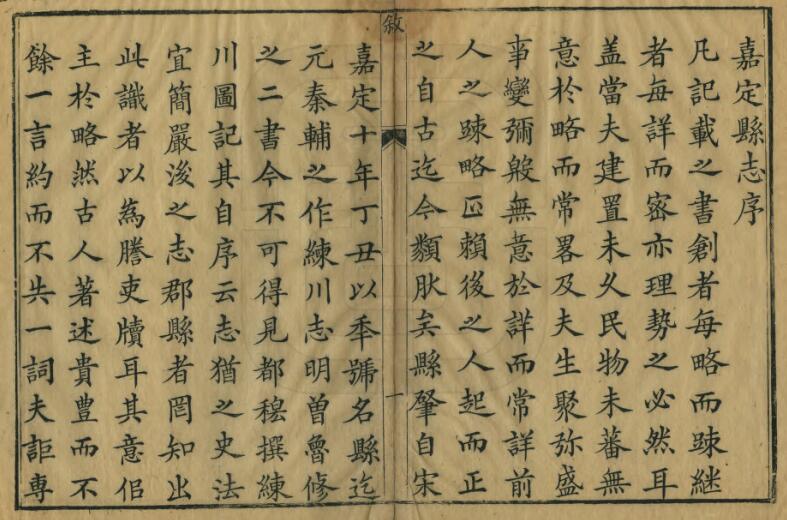 嘉定縣志序
凡記載之書創者每略而踈継
者每詳而密亦理勢之必然耳
盖當夫建置未久民物未蕃無
意於略而常畧及夫生聚弥盛
事變彌般無意於詳而常詳前
人之踈略正賴後之人起而正
之自古迄今纇肰矣縣肇自宋
敘
一
嘉定十年丁丑以秊號名縣迄
元秦輔之作練川志明曽魯修
之二書今不可得見都穆撰練
川圖記其自序云志猶之史法
宜簡嚴後之志郡縣者罔知出
此識者以為謄吏牘耳其意佀
主於略然古人著述貴豊而不
餘一言約而不失一詞夫詎専